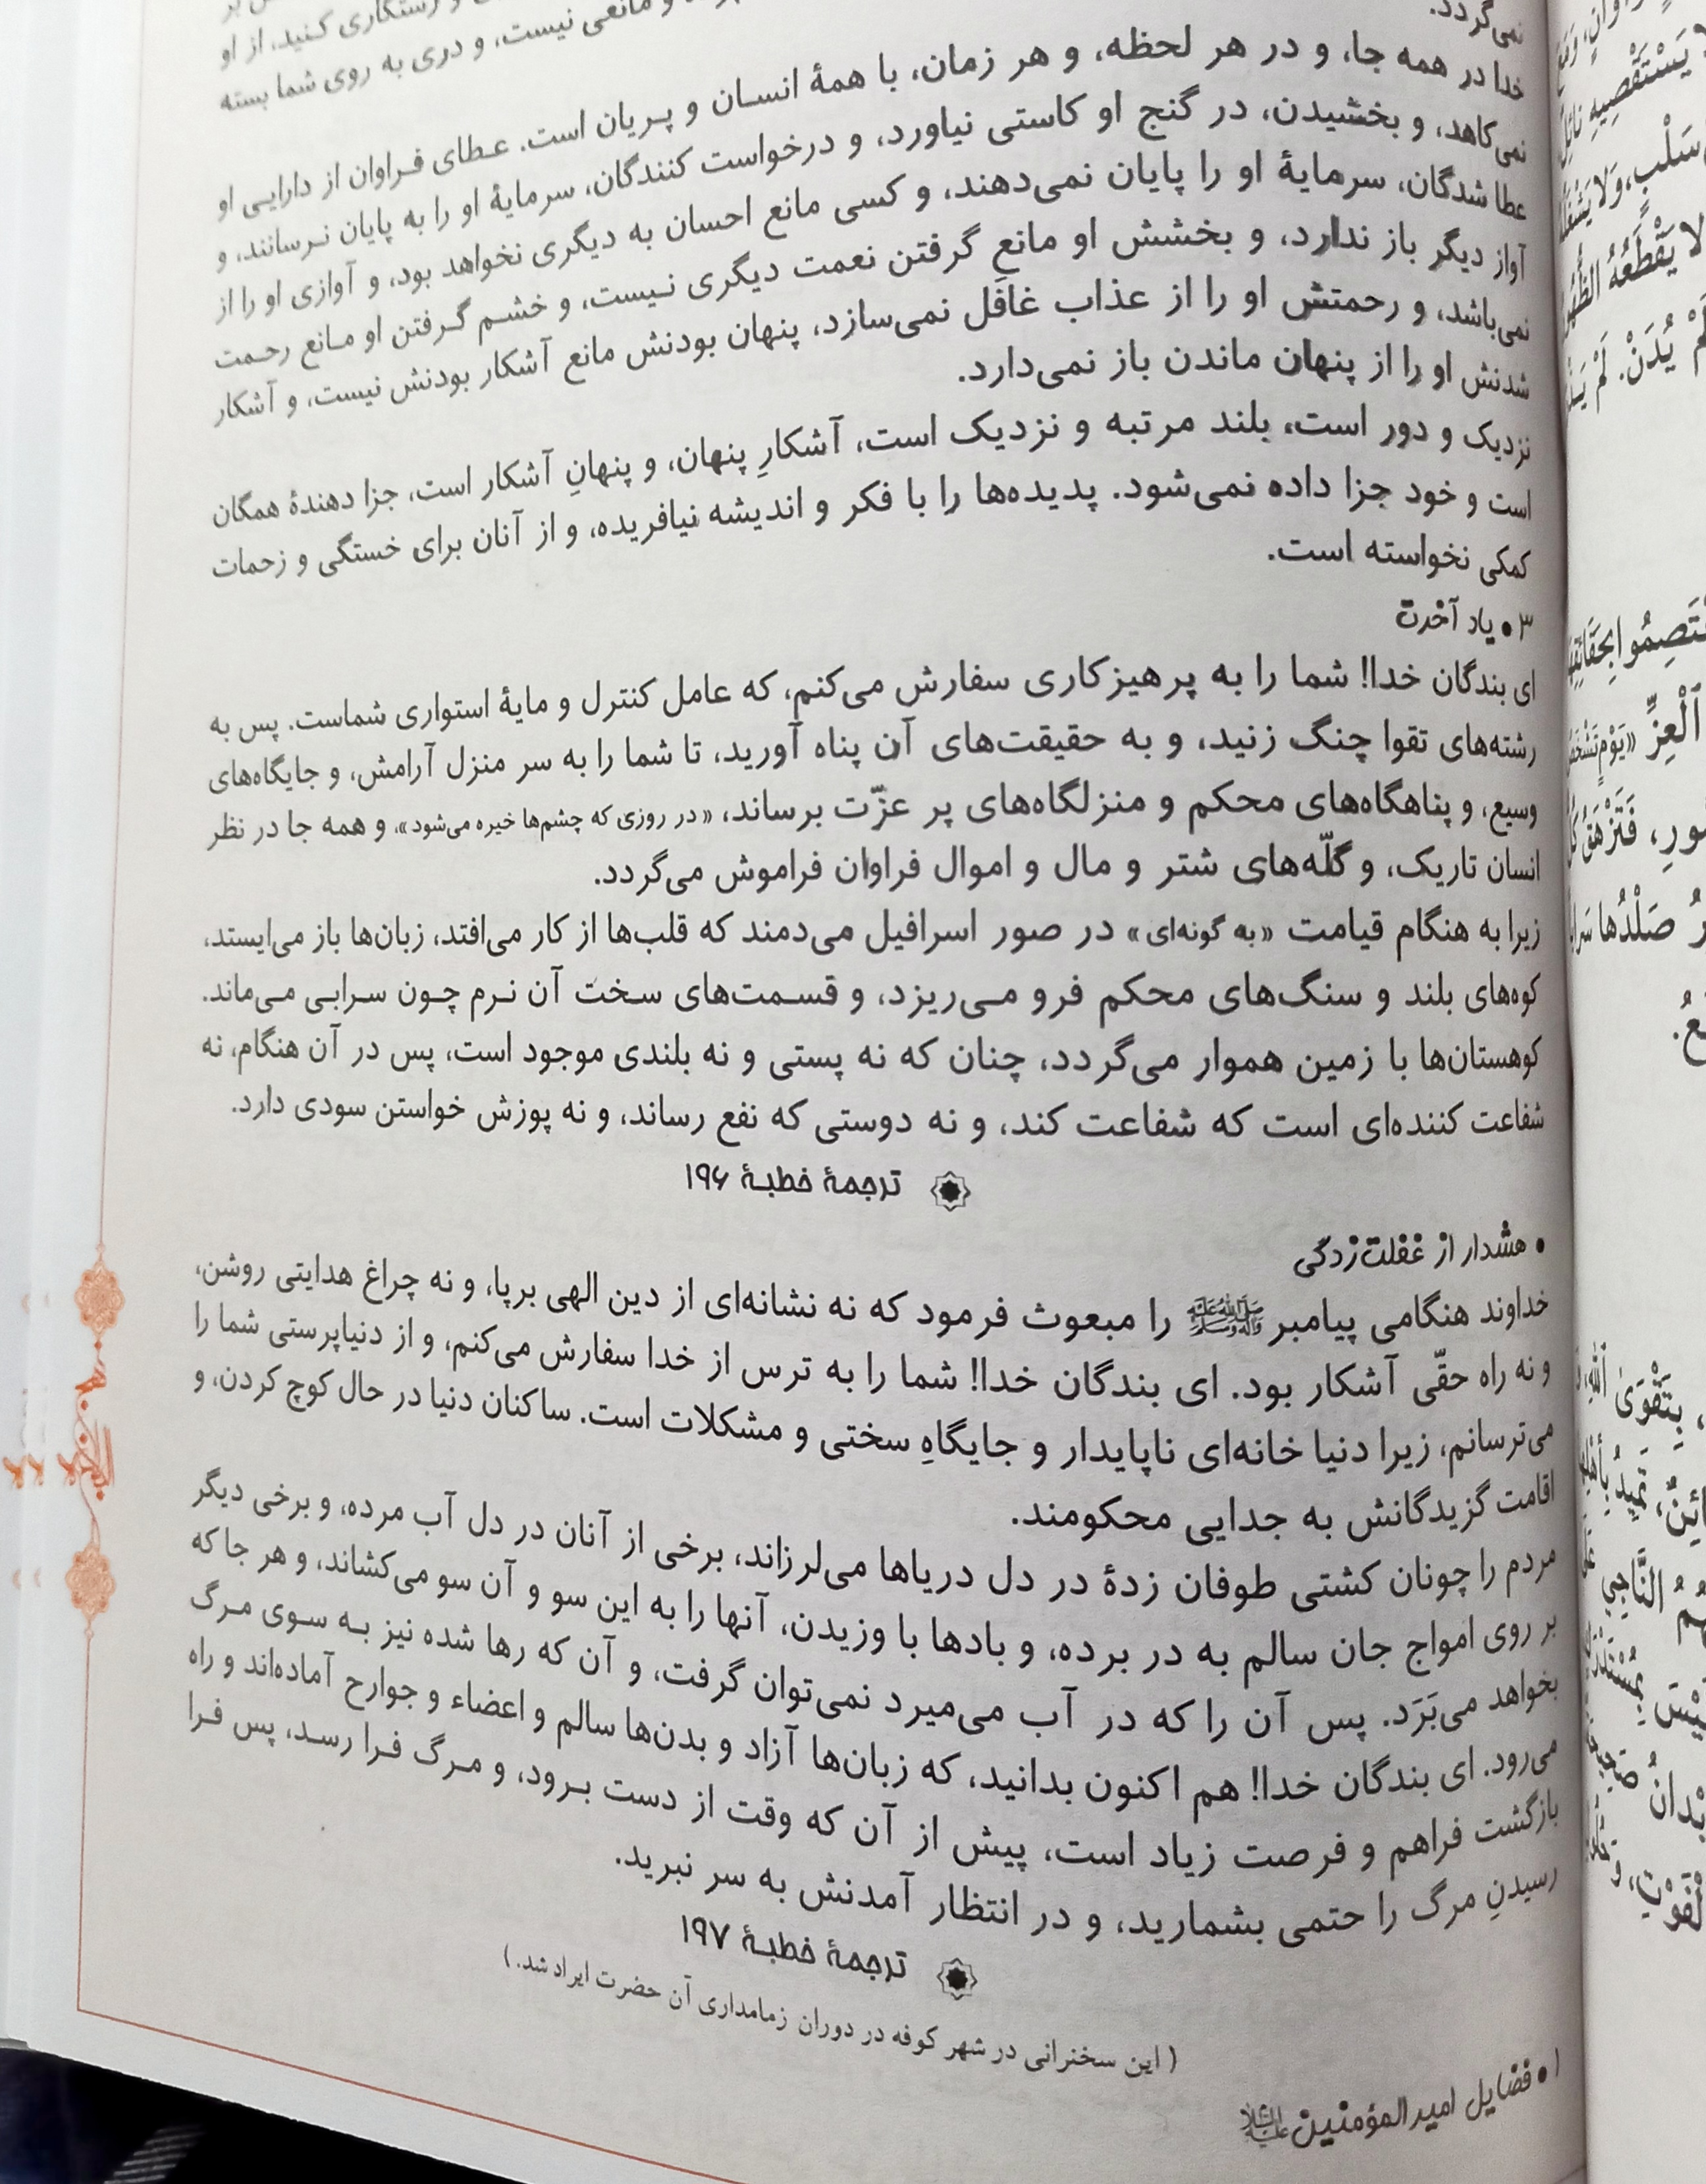 رستگاری کنید، از او
و مانعی نیست، و دری به روی شما بسته
نمی‌گردد.
خدا در همه جا، و در هر لحظه، و هر زمان، با همهٔ انسان و پریان است. عطای فراوان از دارایی او
نمی‌کاهد، و بخشیدن، در گنج او کاستی نیاورد، و درخواست کنندگان، سرمایهٔ او را به پایان نرسانند، و
عطا شدگان، سرمایهٔ او را پایان نمی‌دهند، و کسی مانع احسان به دیگری نخواهد بود، و آوازی او را از
آواز دیگر باز ندارد، و بخشش او مانع گرفتن نعمت دیگری نیست، و خشم گرفتن او مانع رحمت
نمی‌باشد، و رحمتش او را از عذاب غافل نمی‌سازد، پنهان بودنش مانع آشکار بودنش نیست، و آشکار
شدنش او را از پنهان ماندن باز نمی‌دارد.
نزدیک و دور است، بلند مرتبه و نزدیک است، آشکارِ پنهان، و پنهانِ آشکار است، جزا دهندهٔ همگان
است و خود جزا داده نمی‌شود. پدیده‌ها را با فکر و اندیشه نیافریده، و از آنان برای خستگی و زحمات
کمکی نخواسته است.
۳ • یاد آخرت
ای بندگان خدا! شما را به پرهیزکاری سفارش می‌کنم، که عامل کنترل و مایهٔ استواری شماست. پس به
رشته‌های تقوا چنگ زنید، و به حقیقت‌های آن پناه آورید، تا شما را به سر منزل آرامش، و جایگاه‌های
وسیع، و پناهگاه‌های محکم و منزلگاه‌های پر عزّت برساند، «در روزی که چشم‌ها خیره می‌شود»، و همه جا در نظر
انسان تاریک، و گلّه‌های شتر و مال و اموال فراوان فراموش می‌گردد.
زیرا به هنگام قیامت «به گونه‌ای» در صور اسرافیل می‌دمند که قلب‌ها از کار می‌افتد، زبان‌ها باز می‌ایستد،
کوه‌های بلند و سنگ‌های محکم فرو می‌ریزد، و قسمت‌های سخت آن نرم چون سرابی می‌ماند.
کوهستان‌ها با زمین هموار می‌گردد، چنان که نه پستی و نه بلندی موجود است، پس در آن هنگام، نه
شفاعت کننده‌ای است که شفاعت کند، و نه دوستی که نفع رساند، و نه پوزش خواستن سودی دارد.
ترجمهٔ خطبهٔ ۱۹۶
• هشدار از غفلت‌زدگی
خداوند هنگامی پیامبر ﷺ را مبعوث فرمود که نه نشانه‌ای از دین الهی برپا، و نه چراغ هدایتی روشن،
و نه راه حقّی آشکار بود. ای بندگان خدا! شما را به ترس از خدا سفارش می‌کنم، و از دنیاپرستی شما را
می‌ترسانم، زیرا دنیا خانه‌ای ناپایدار و جایگاهِ سختی و مشکلات است. ساکنان دنیا در حال کوچ کردن، و
اقامت گزیدگانش به جدایی محکومند.
مردم را چونان کشتی طوفان زدهٔ در دل دریاها می‌لرزاند، برخی از آنان در دل آب مرده، و برخی دیگر
بر روی امواج جان سالم به در برده، و بادها با وزیدن، آنها را به این سو و آن سو می‌کشاند، و هر جا که
بخواهد می‌بَرَد. پس آن را که در آب می‌میرد نمی‌توان گرفت، و آن که رها شده نیز به سوی مرگ
می‌رود. ای بندگان خدا! هم اکنون بدانید، که زبان‌ها آزاد و بدن‌ها سالم و اعضاء و جوارح آماده‌اند و راه
بازگشت فراهم و فرصت زیاد است، پیش از آن که وقت از دست برود، و مرگ فرا رسد، پس فرا
رسیدنِ مرگ را حتمی بشمارید، و در انتظار آمدنش به سر نبرید.
ترجمهٔ خطبهٔ ۱۹۷
( این سخنرانی در شهر کوفه در دوران زمامداری آن حضرت ایراد شد. )
۱ • فضایل امیرالمؤمنین علیه‌السلام